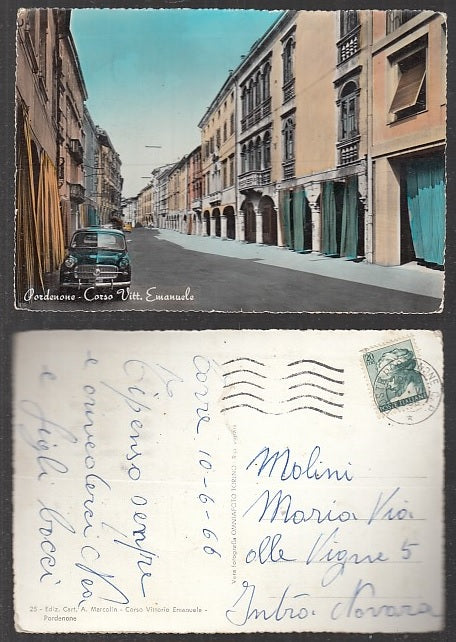 Pordenone - Corso Vitt. Emanuele
Torre 10-6-66
Ti penso sempre
e arivederci
e figli bacci
25 - Ediz. Cart. A. Marcolin - Corso Vittorio Emanuele -
Pordenone
Vera fotografia OMNIAFOTO TORINO
20
POSTE ITALIANE
Molini
Maria Via
alle Vigne 5
Intra Novara